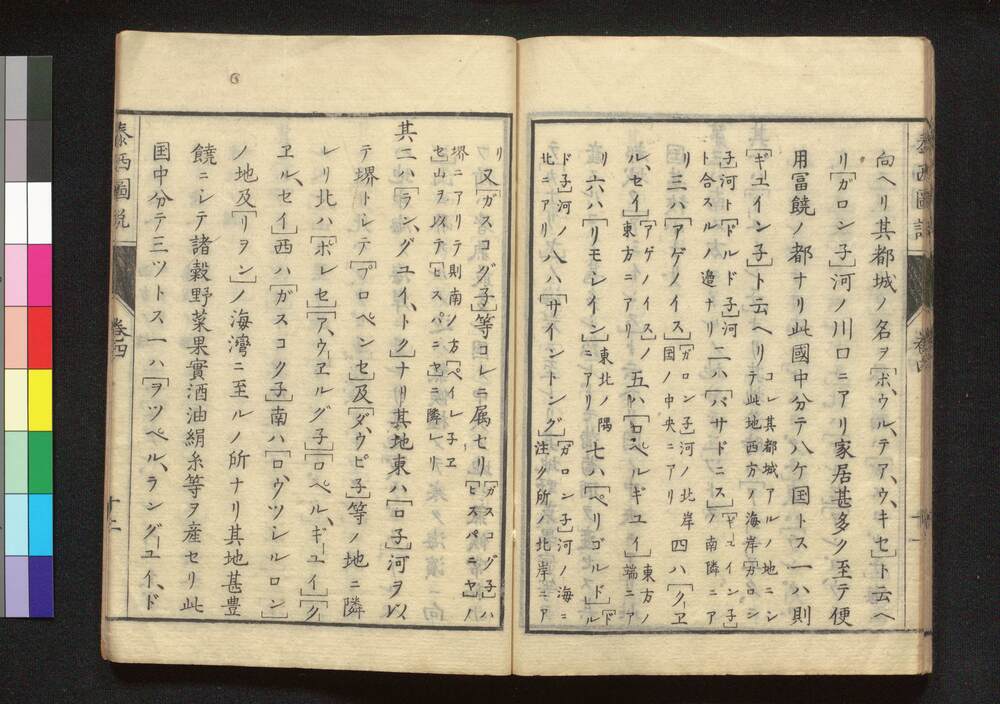 向ヘリ其都城ノ名ヲ[ボ、ウル、テア、ウ、キセ]ト云ヘ
リ[ガロン子]河ノ川口ニアリ家居甚多ク至テ便
用富饒ノ都ナリ此國中分テ八ケ国トス一ハ則
[ギユイン子]ト云ヘリ コレ其都城アルノ地ニシ
テ此地西方ノ海岸[ガロン
子]河ト[ドルド子]河
ト合スルノ邉ナリ 二ハ[バサドニス] [ギュイン子]
ノ南隣ニア
リ 三ハ[アゲノイス] [ガロン子]河ノ北岸
国ノ中央ニアリ 四ハ[クヱ
ル、セイ] [アゲノイス]ノ
東方ニアリ 五ハ[ロベルギユイ] 東方ノ
端ニア
リ 六ハ[リモシイン] 東北ノ隅
ニアリ 七ハ[ペリゴルド] [ドル
ド子]河ノ
北ニアリ 八ハ[サイントング] [ガロン子]河ノ海ニ
注ク所ハ北岸ニア
リ 又[ガスコグ子]等コレニ属セリ [ガスコグ子]ハ
[ヒスパニヤ]ノ
堺ニアリテ則南ノ方[ペイレ子ヱ
セ]山ヲ以テ[ヒスパニヤ]ニ隣レリ
其二ハ[ラン、グユイ、トク]ナリ其地東ハ[ロ子]河ヲ以
テ堺トシテ[プロペンセ]及[ダ、ウピ子]等ノ地ニ隣
レリ北ハ[ポレセ][ア、ウ、ヱルグ子][ロペル、ギーユイ][ク
ヱル、セイ]西ハ[ガスコク子]南ハ[ロ、ウツシルロン]
ノ地及[リヲン]ノ海灣ニ至ルノ所ナリ其地甚豊
饒ニシテ諸穀野菜果實酒油絹糸等ヲ産セリ此
国中分テ三ツトス一ハ[ヲツペル、ラングーユイ、ド
泰西圖説
卷四
十二